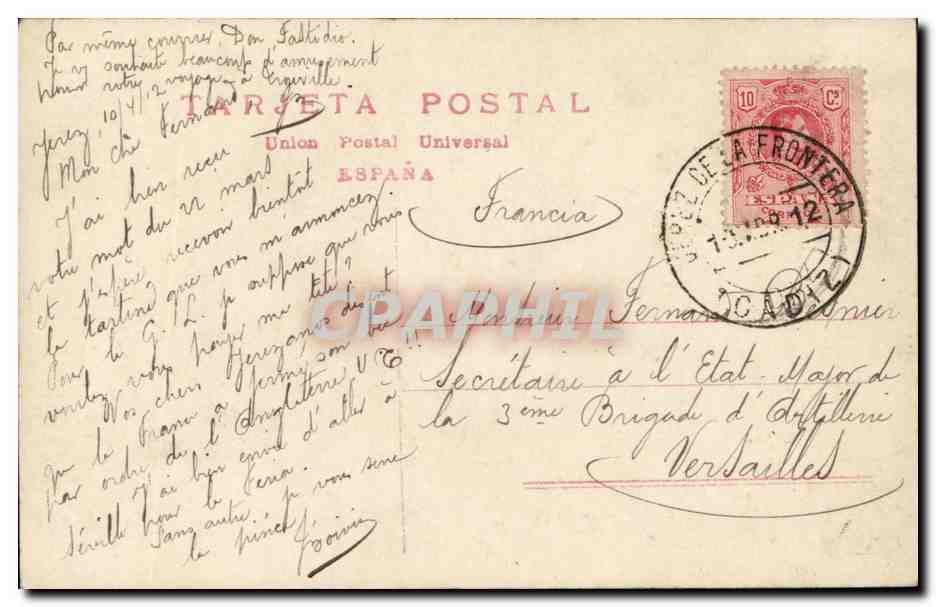 Par même courrier, Don Fastidio.
Je vs souhaite beaucoup d'amusement
pour votre voyage à
TARJETA POSTAL
Union Postal Universal
ESPAÑA
Jerez, 10/4/12
Mon ché Fernand,
J'ai bien reçu
votre mot du 22 mars
et j'espère recevoir bientôt
la tartine que vous m'annoncez.
Pour le G. L. je suppose que vous
voulez vous payer ma tête?
Nos chers Jerezanos disent
que la France a fermé son
par ordre de l'Angleterre !!
J'ai bien envie d'aller à
Séville pour la Feria.
Sans autre je vous serre
la pince
10 Cs
ESPAÑA
JEREZ DE LA FRONTERA
12
(CADIZ)
Francia
CPRAPHIL
Monsieur Fernand
Secrétaire à l'Etat-Major de
la 3ème Brigade d'Artillerie
Versailles